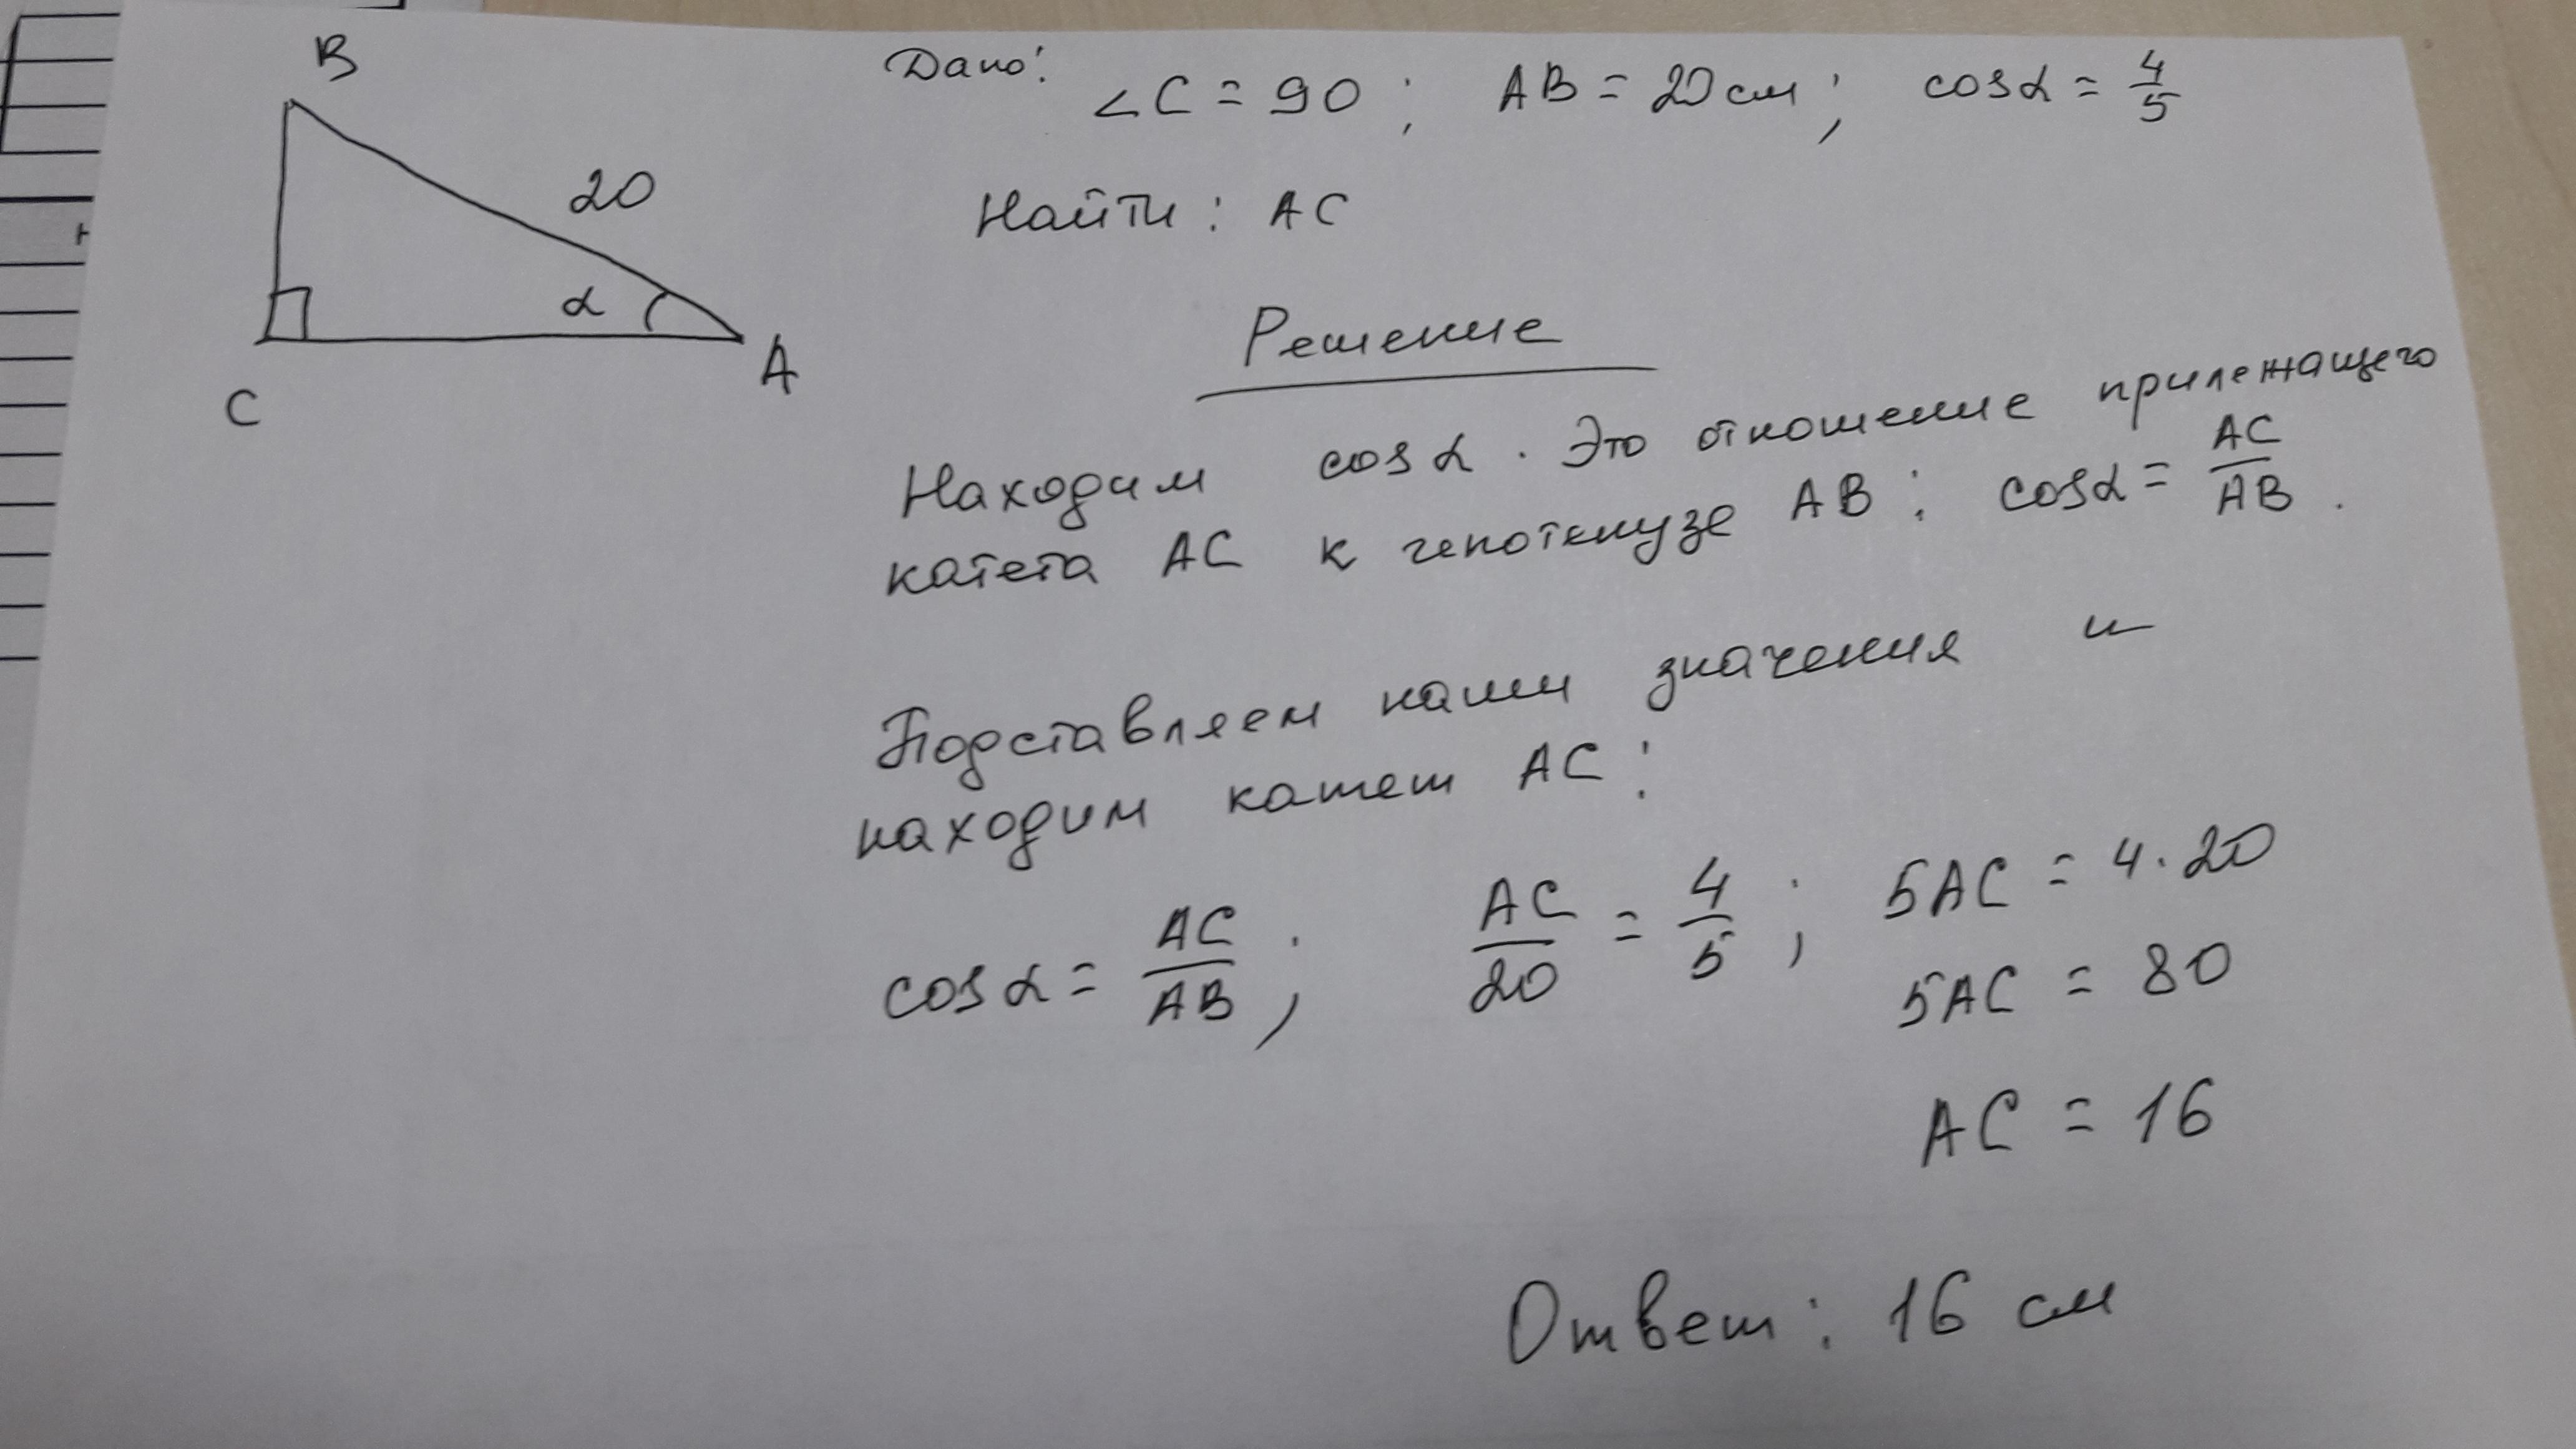 B
20
α
A
C
Дано:
∠C = 90 ; AB = 20 см ; cosα = 4/5
Найти : AC
Решение
Находим cosα . Это отношение прилежащего
катета AC к гепотенузе AB : cosα = AC/AB .
Подставляем наши значения и
находим катет AC :
cosα = AC/AB ; AC/20 = 4/5 ; 5AC = 4 · 20
5AC = 80
AC = 16
Ответ : 16 см